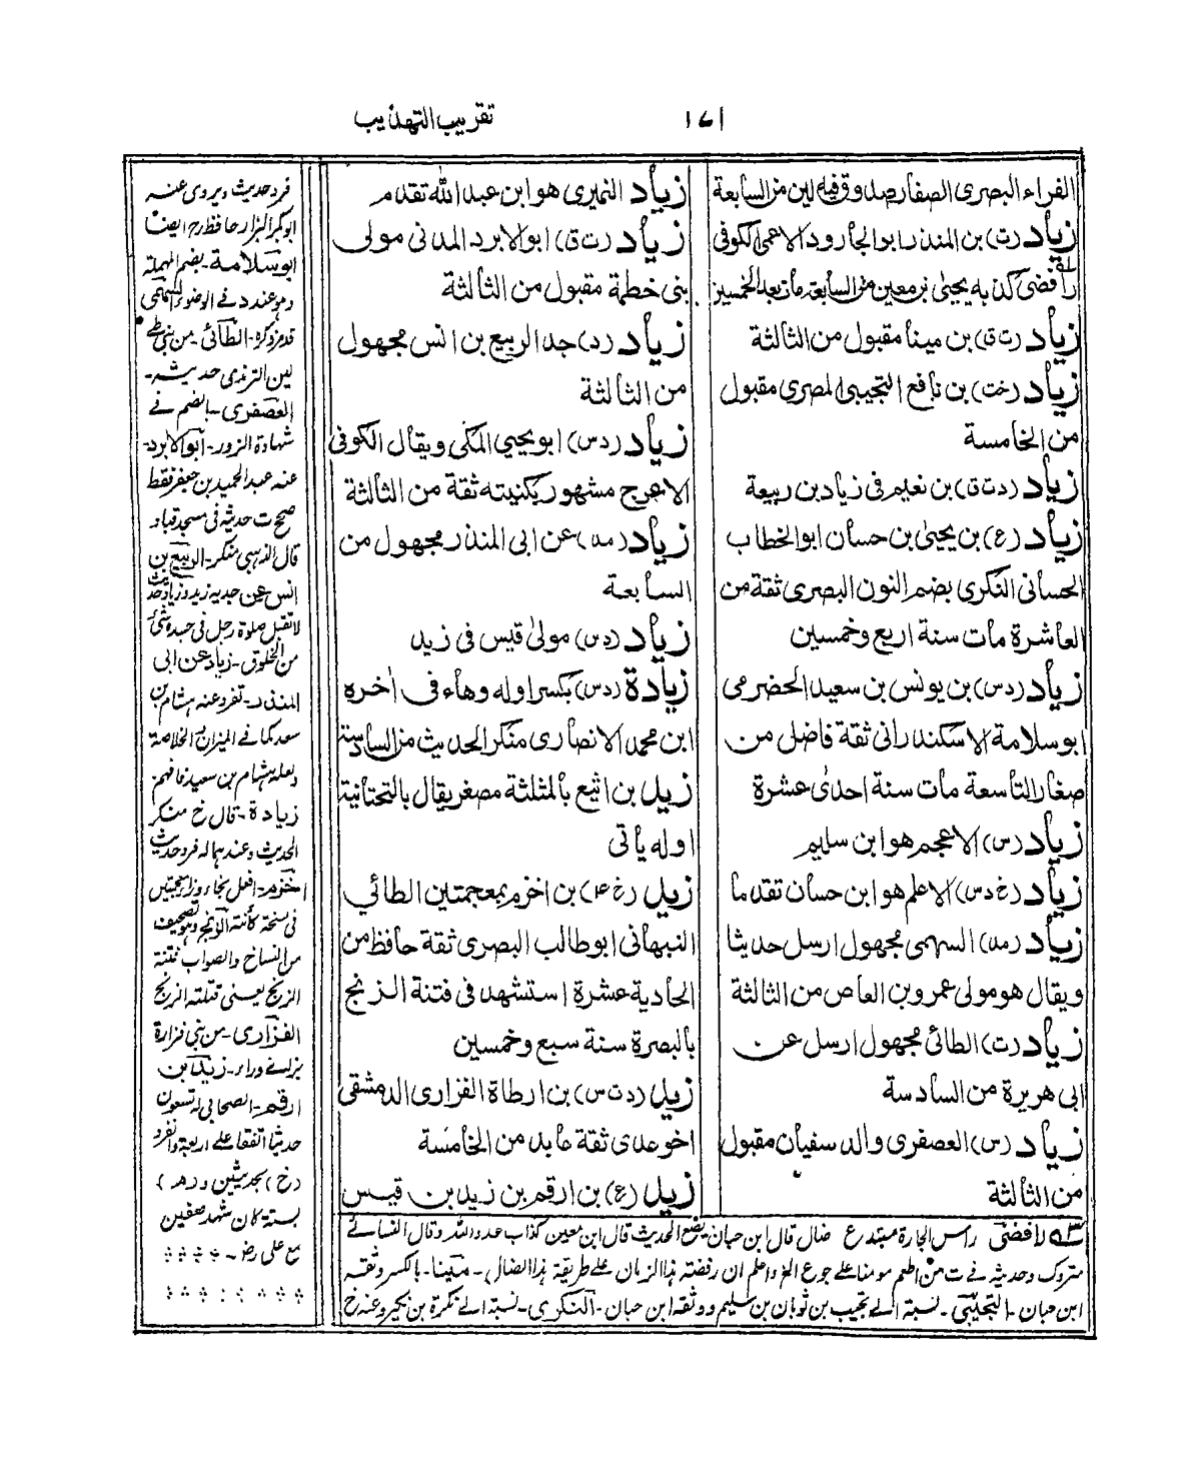 تقريب التهذيب
١٧١
الفراء البصرى الصفار صدوق فيه لين من السابعة
زياد (ت) بن المنذر ابو الجارود الاعمى الكوفى
رافضى كذبه يحيى بن معين من السابعة مات بعد الخمسين
زياد (ت ق) بن مينا مقبول من الثالثة
زياد (خت) بن نافع التجيبى المصرى مقبول
من الخامسة
زياد (د ت ق) بن نعيم فى زياد بن ربيعة
زياد (ع) بن يحيىٰ بن حسان ابو الخطاب
الحسانى النكرى بضم النون البصرى ثقة من
العاشرة مات سنة اربع وخمسين
زياد (د س) بن يونس بن سعيد الحضرمى
ابو سلامة الاسكندرانى ثقة فاضل من
صغار التاسعة مات سنة احدى عشرة
زياد (س) الاعجم هو ابن سليم
زياد (خ د س) الاعلم هو ابن حسان تقدما
زياد (مد) السهمى مجهول ارسل حديثا
ويقال هو مولى عمرو بن العاص من الثالثة
زياد (ت) الطائى مجهول ارسل عن
ابى هريرة من السادسة
زياد (س) العصفرى والد سفيان مقبول
من الثالثة
زياد النميرى هو ابن عبد الله تقدم
زياد (ت ق) ابو الابرد المدنى مولى
بنى خطمة مقبول من الثالثة
زياد (د) جد الربيع بن انس مجهول
من الثالثة
زياد (د س) ابو يحيى المكى ويقال الكوفى
الاعرج مشهور بكنيته ثقة من الثالثة
زياد (مد) عن ابى المنذر مجهول من
السابعة
زياد (د س) مولىٰ قيس فى زيد
زيادة (د س) بكسر اوله وهاء فى اخره
ابن محمد الانصارى منكر الحديث من السادسة
زيد بن اثيع بالمثلثة مصغر يقال بالتحتانية
اوله ياتى
زيد (خ ٤) بن اخزم بمعجمتين الطائي
النبهانى ابو طالب البصرى ثقة حافظ من
الحادية عشرة استشهد فى فتنة الزنج
بالبصرة سنة سبع وخمسين
زيد (د ت س) بن ارطاة الفزارى الدمشقى
اخو عدى ثقة عابد من الخامسة
زيد (ع) بن ارقم بن زيد بن قيس
فرد حديث ويروى عنه
ابو بكر البزار حافظ رح ايضا
ابو سلامة ـ بضم المهملة
وهو عند د فى الوضوء السهمى
قدم ذكره ـ الطائى ـ من بنى طے
لين الترمذى حديثه ـ
العصفرى ـ بالضم فے
شهادة الزور ـ ابو الابرد ـ
عنه عبد الحميد بن جعفر فقط
صحت حديثه فى مسجد قباء
قال الذهبى منكر ـ الربيع بن
انس عن جديه زيد وزياد حديث
لا تقبل صلوة رجل فى جسده شئ
من الخلوق ـ زياد عن ابى
المنذر ـ تفرد عنه هشام بن
سعد كما فے الميزان والخلاصة
ولعله هشام بن سعيد فافهم
زيادة ـ قال خ منكر
الحديث وعندهما له فرد حديث
اخزم ـ افعل بخاء وزا معجمتين
فى نسخة كأنته الزنج وهو تصحيف
من النساخ والصواب فتنة
الزنج يعنى قتلته الزنج
الفزارى ـ من بنى فزارة
بزاے وراء ـ زيد بن
ارقم ـ الصحابى له تسعون
حديثا اتفقا على اربعة وانفرد
(خ) بحديثين و (م)
بستة كان شهد صفين
مع على رض ـ
رافضى راس الجارة مبتدع ضال قال ابن حبان يضع الحديث قال ابن معين كذاب عدو الله وقال النسائے
متروك وحديثه فے ت من اطعم مومنا على جوع الخ واعلم ان رفضته هذا الزمان على طريقة هذا الضال ـ مينا ـ بالكسر وثقه
ابن حبان ـ التجيبى ـ نسبة الے تجيب بن ثوبان بن سليم ووثقه ابن حبان ـ النكرى ـ نسبة الے نكرة بن بكير وعنه خ